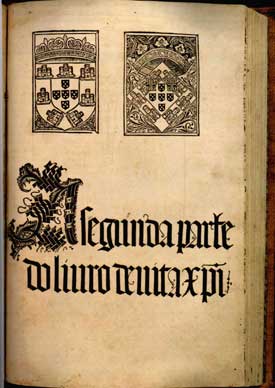 A segunda parte
do liuro de vita xp̄i